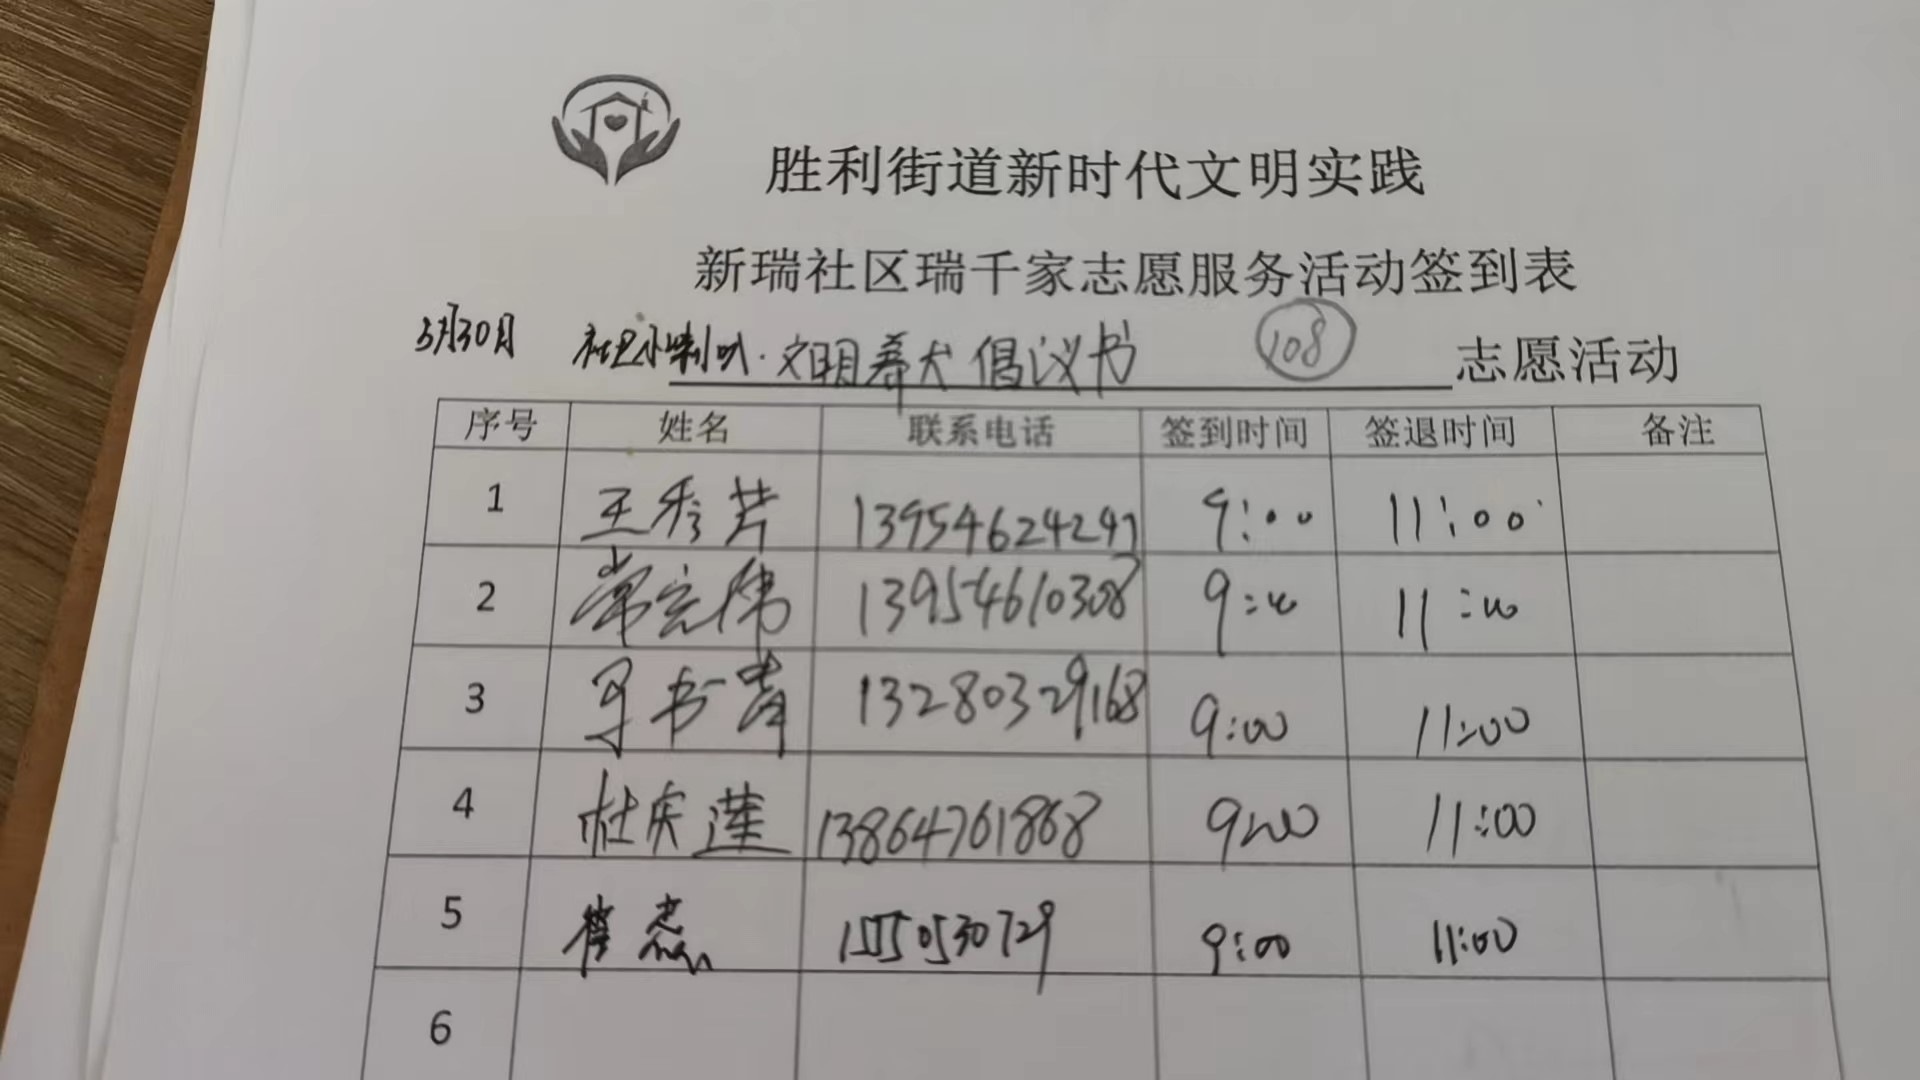 胜利街道新时代文明实践
新瑞社区瑞千家志愿服务活动签到表
3月30日 社区小喇叭·文明养犬倡议书 108 志愿活动
序号 姓名 联系电话 签到时间 签退时间 备注
1 王秀芳 13954624297 9:00 11:00
2 常宏伟 13954610308 9:00 11:00
3 书青 13280329168 9:00 11:00
4 杜庆莲 13864761868 9:00 11:00
5 崔焘 9:00 11:00
6